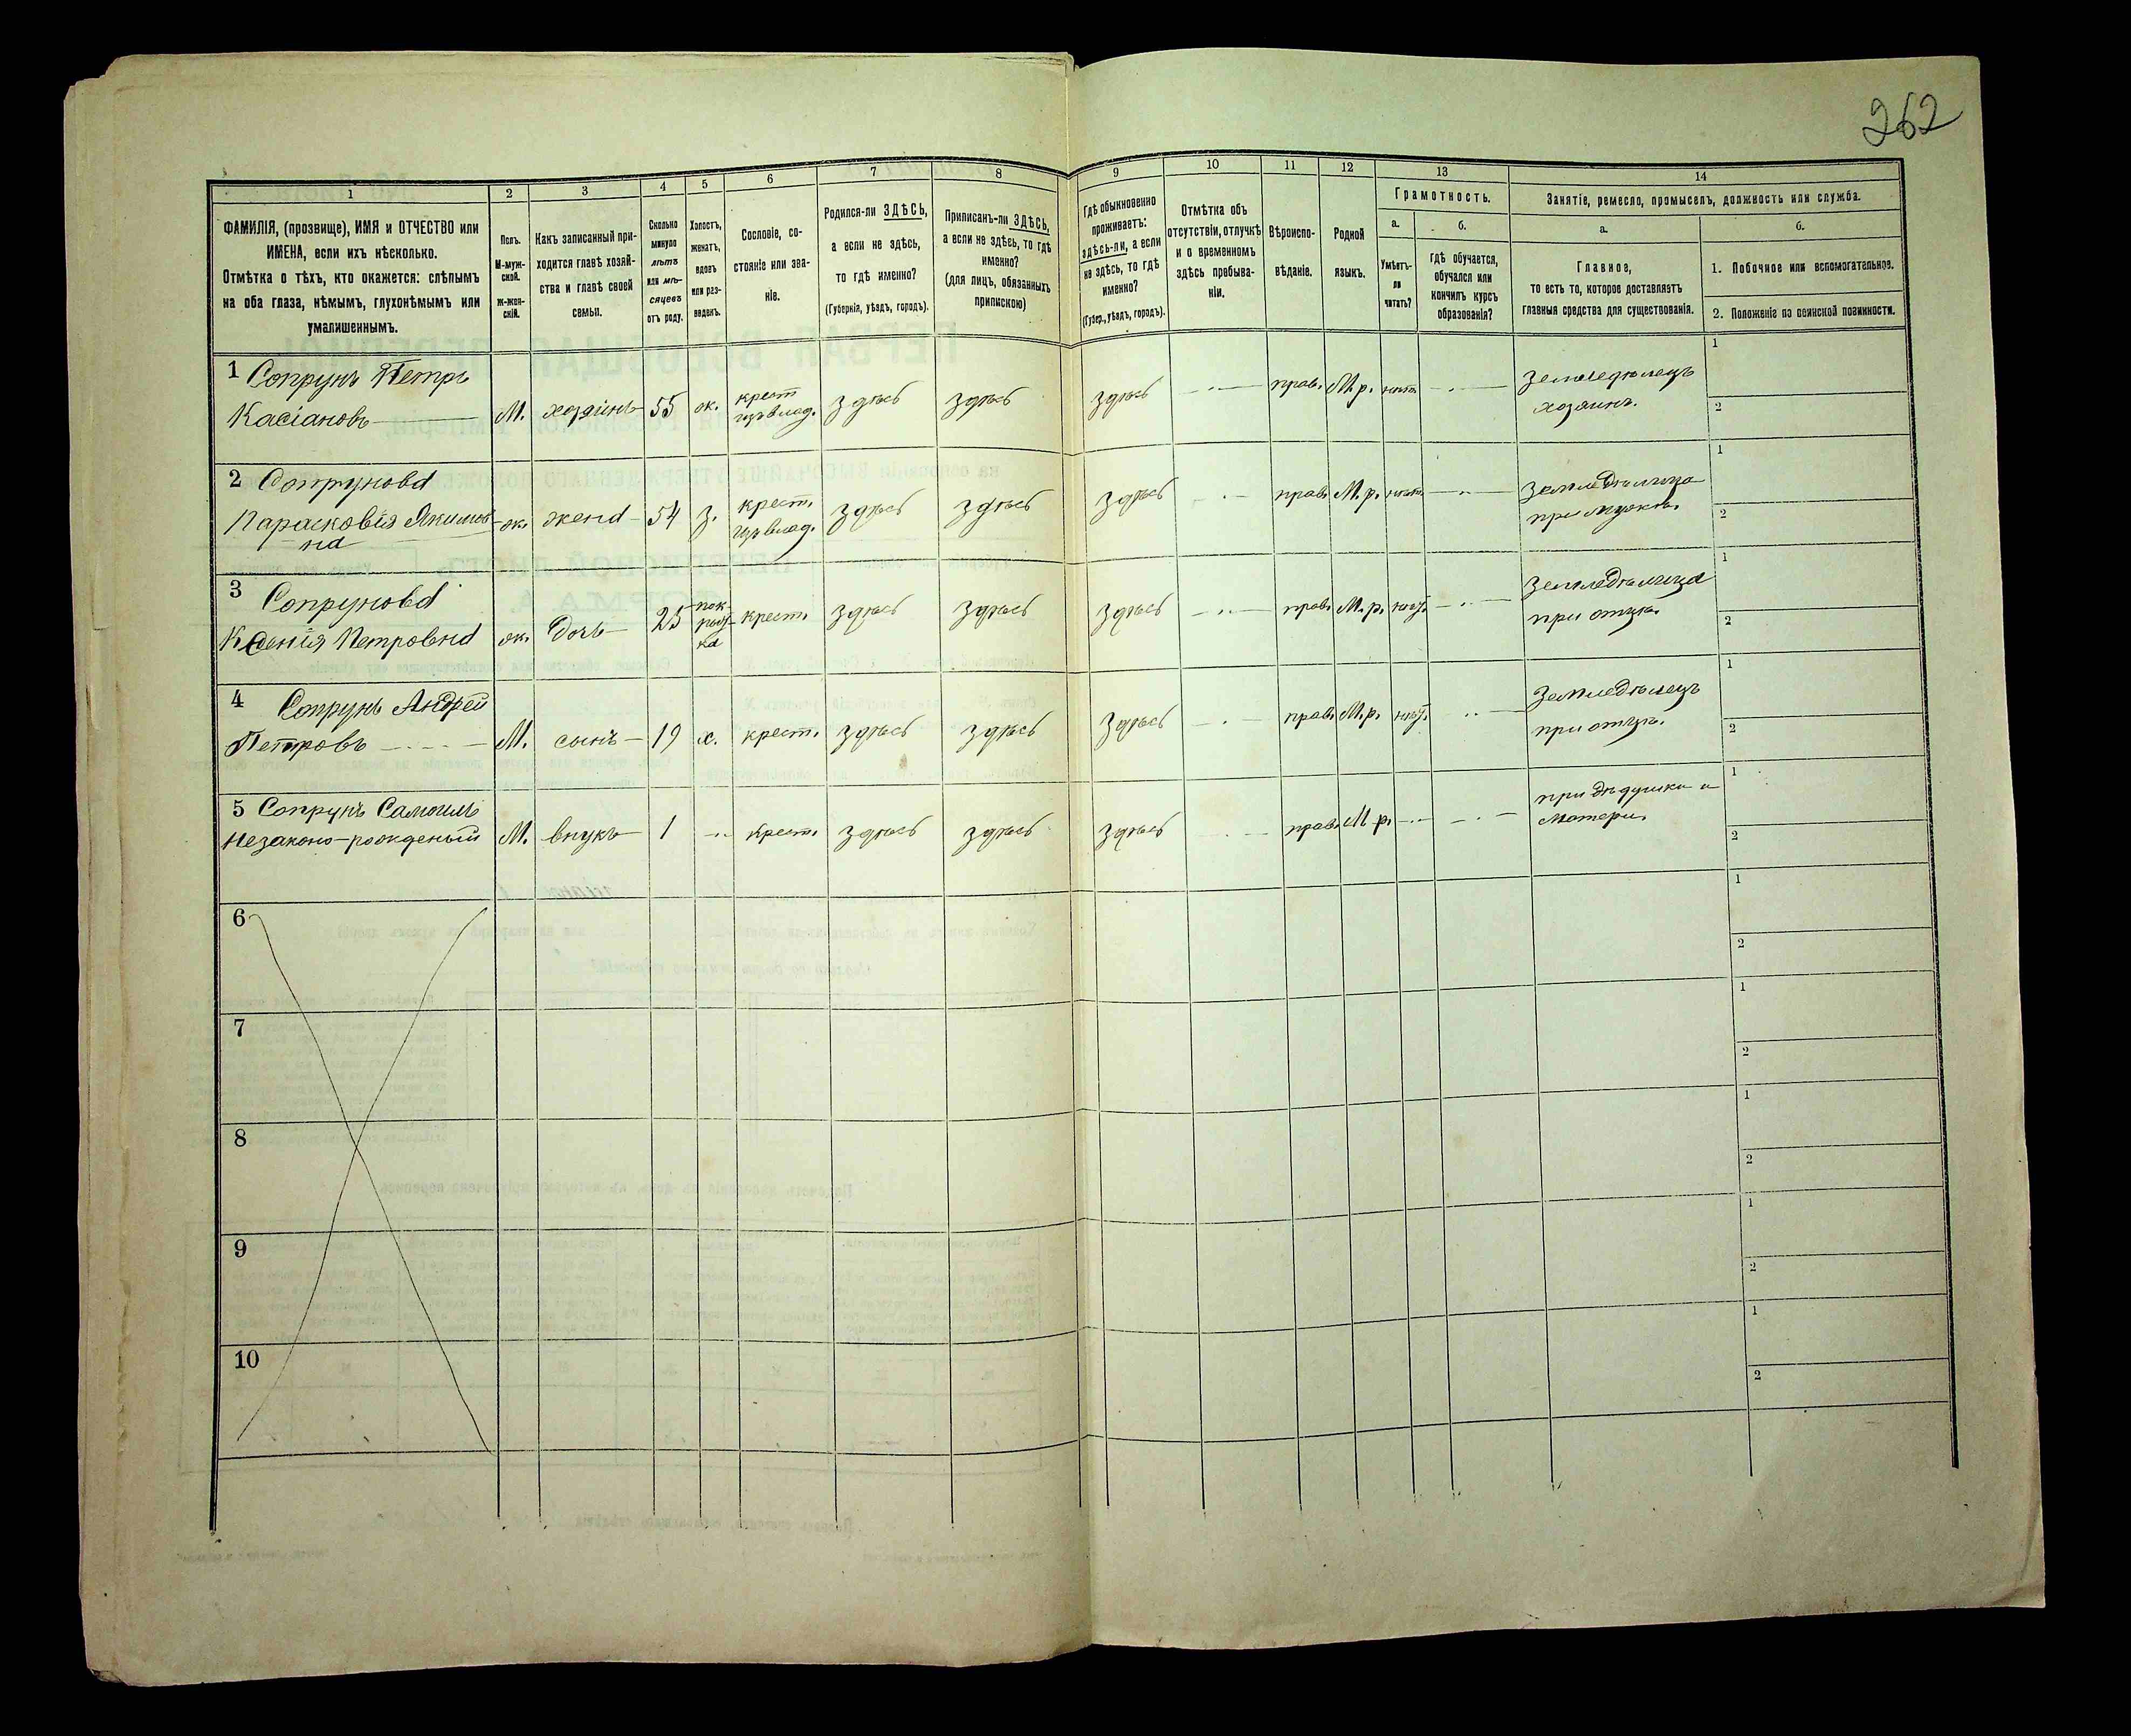 262
1 2 3 4 5 6 7 8 9 10 11 12 13 14
ФАМИЛІЯ, (прозвище), ИМЯ и ОТЧЕСТВО или
ИМЕНА, если ихъ нѣсколько.
Отмѣтка о тѣхъ, кто окажется: слѣпымъ
на оба глаза, нѣмымъ, глухонѣмымъ или
умалишеннымъ.
Полъ.
М-муж-
ской.
ж-жен-
скій.
Какъ записанный при-
ходится главѣ хозяй-
ства и главѣ своей
семьи.
Сколько
минуло
лѣтъ
или мѣ-
сяцевъ
отъ роду.
Холостъ,
женатъ,
вдовъ
или раз-
веденъ.
Сословіе, со-
стояніе или зва-
ніе.
Родился-ли ЗДѢСЬ,
а если не здѣсь,
то гдѣ именно?
(Губернія, уѣздъ, городъ).
Приписанъ-ли ЗДѢСЬ,
а если не здѣсь, то гдѣ
именно?
(для лицъ, обязанныхъ
припискою)
Гдѣ обыкновенно
проживаетъ:
здѣсь-ли, а если
не здѣсь, то гдѣ
именно?
(Губер., уѣздъ, городъ).
Отмѣтка объ
отсутствіи, отлучкѣ
и о временномъ
здѣсь пребыва-
ніи.
Вѣроиспо-
вѣданіе.
Родной
языкъ.
Грамотность.
а.
Умѣетъ-
ли
читать?
б.
гдѣ обучается,
обучался или
кончилъ курсъ
образованія?
Занятіе, ремесло, промыселъ, должность или служба.
а.
Главное,
то есть то, которое доставляетъ
главныя средства для существованія.
б.
1. Побочное или вспомогательное.
2. Положеніе по воинской повинности.
1 Сопрунъ Петръ
Касіановъ М. хозяинъ 55 ж. крест изъ влад. здѣсь здѣсь здѣсь прав. М.р. нѣтъ Земледѣлецъ хозяинъ. 1 2
2 Сопрунова
Парасковія Якимов-
на ж. жена 54 з. крест. изъ влад. здѣсь здѣсь здѣсь прав. М.р. нѣтъ Земледѣлица при мужѣ. 1 2
3 Сопрунова
Ксенія Петровна ж. дочь 25 пок-рыт-ка крест. здѣсь здѣсь здѣсь прав. М.р. нѣт. Земледѣлица при отцѣ. 1 2
4 Сопрунъ Андрей
Петровъ М. сынъ 19 х. крест. здѣсь здѣсь здѣсь прав. М.р. нѣт. Земледѣлецъ при отцѣ. 1 2
5 Сопрунъ Самоилъ
Незаконо-рожденый М. внукъ 1 крест. здѣсь здѣсь здѣсь прав. М.р. при дѣдушки и матери. 1 2
6 1 2
7 1 2
8 1 2
9 1 2
10 1 2